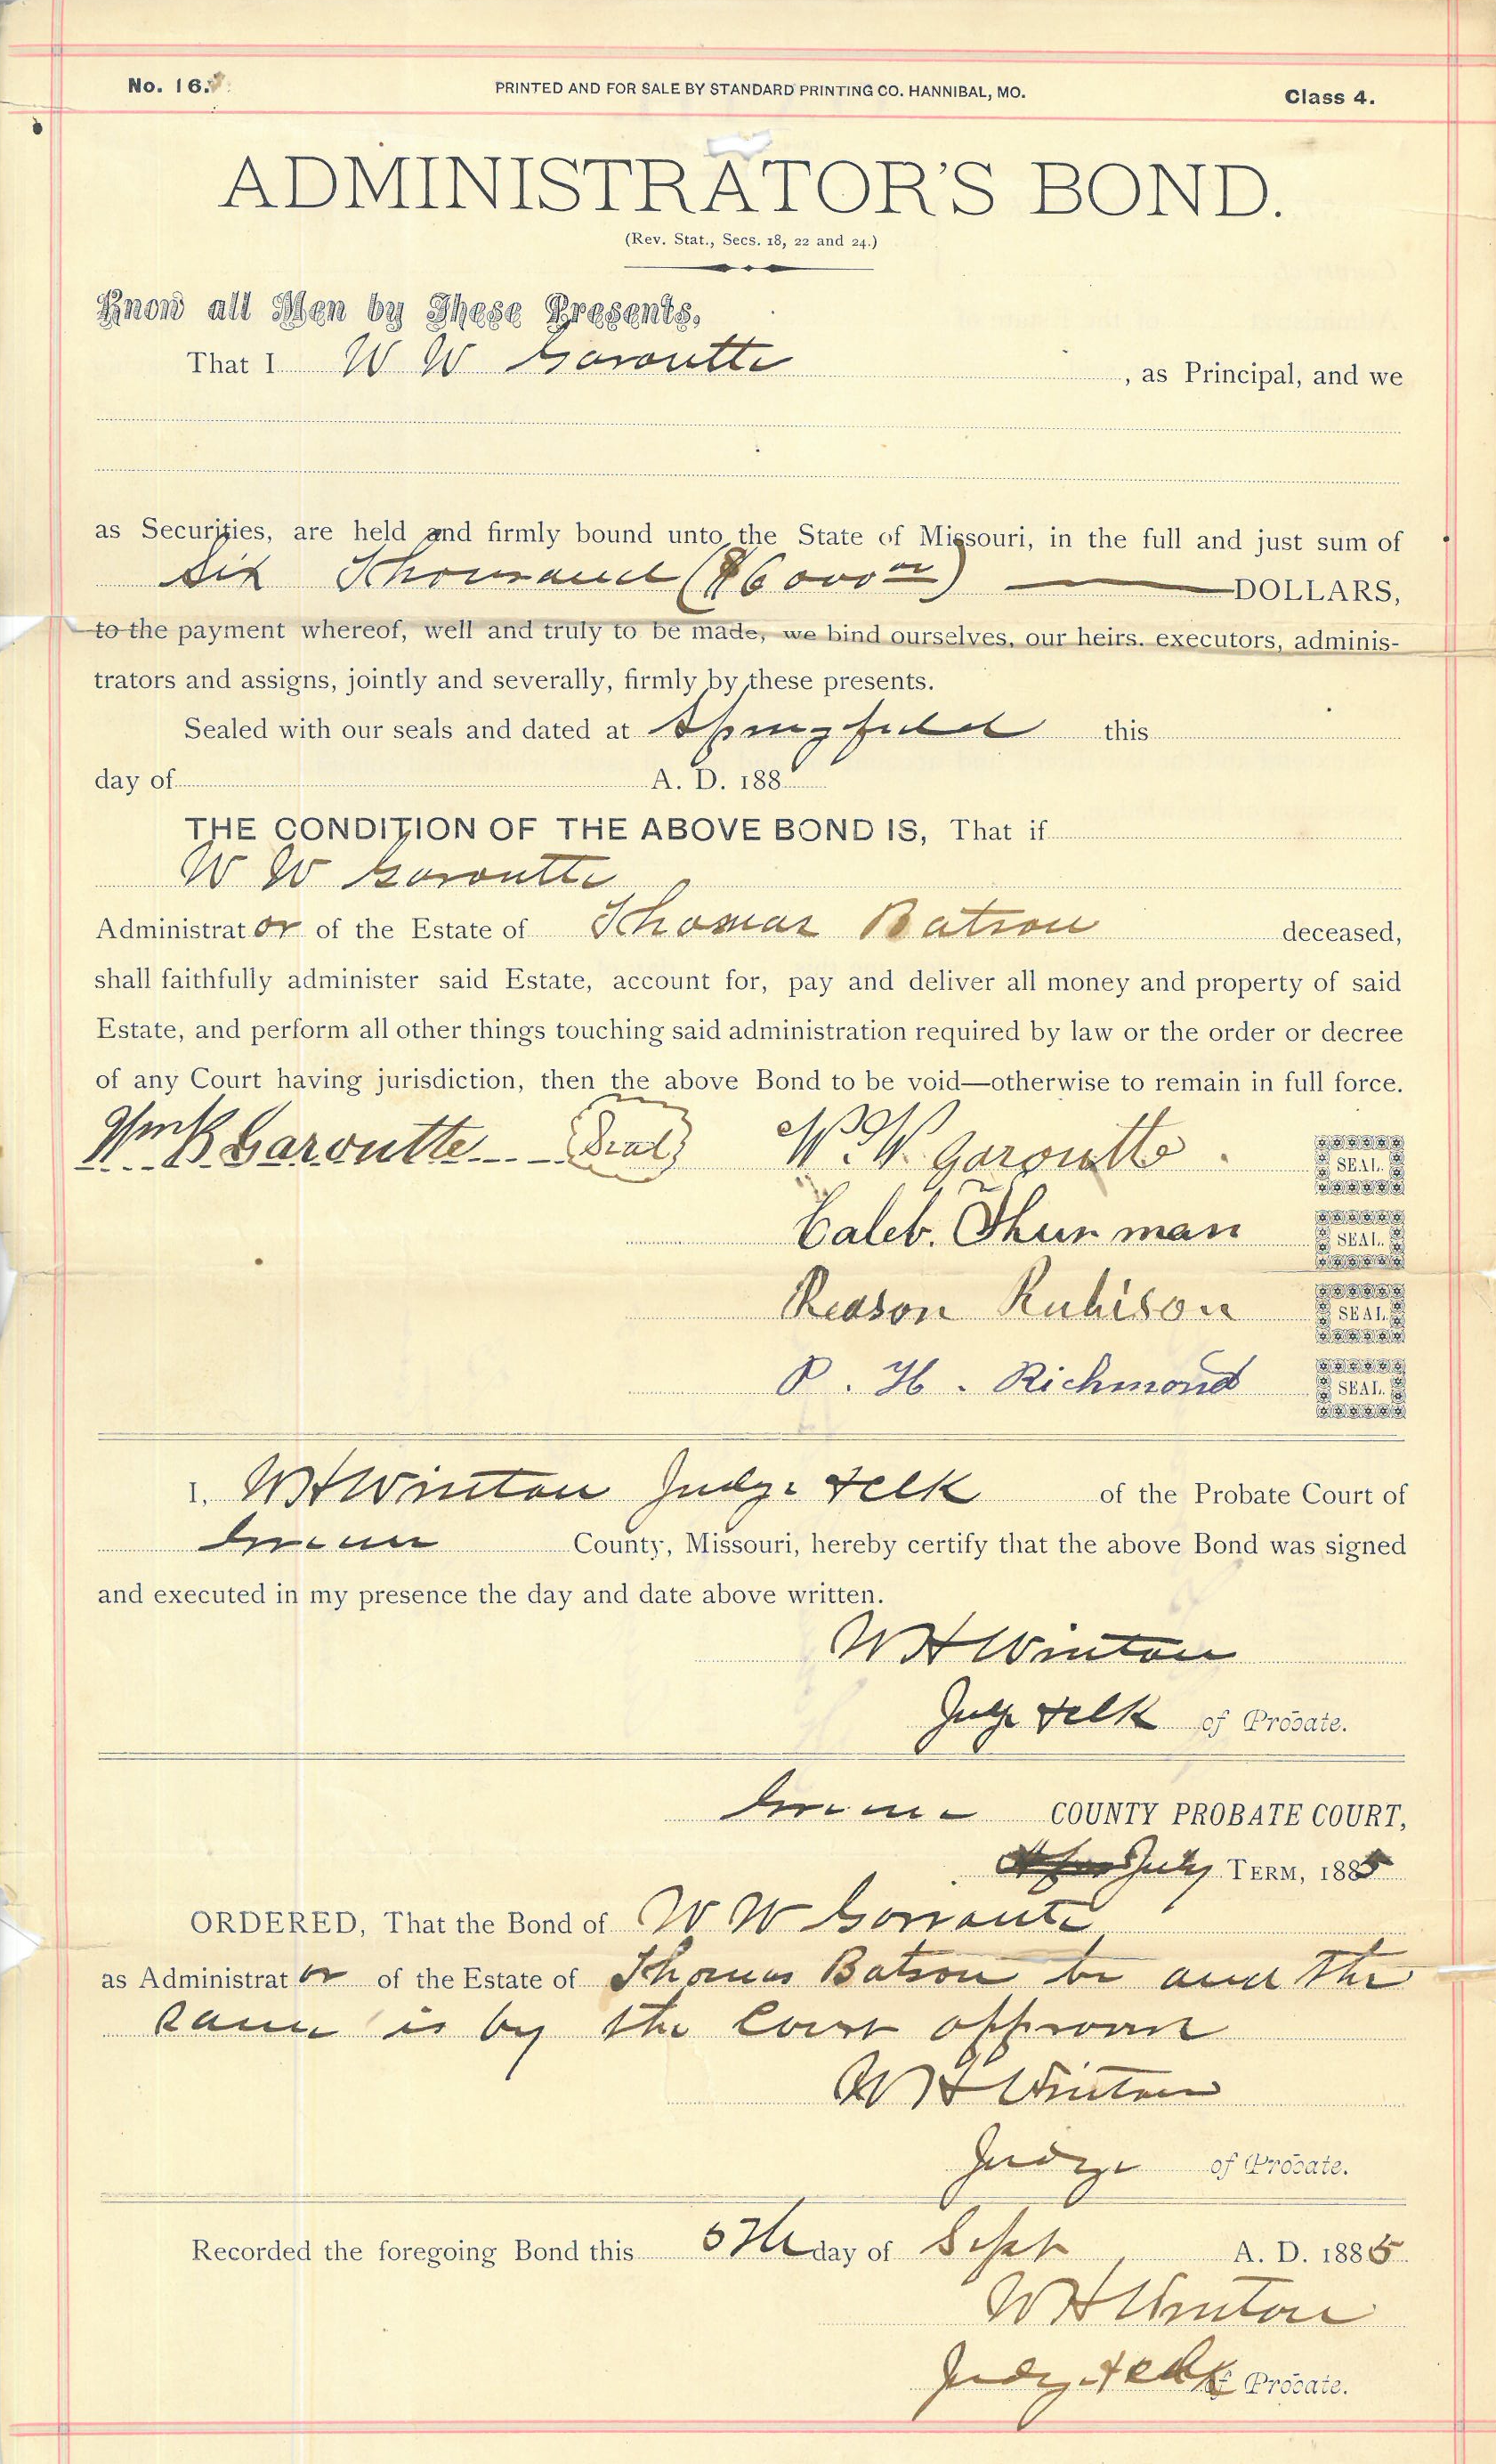 No. 16.
PRINTED AND FOR SALE BY STANDARD PRINTING CO. HANNIBAL, MO.
Class 4.
ADMINISTRATOR'S BOND.
(Rev. Stat., Secs. 18, 22 and 24.)
Know all Men by These Presents,
That I W W Garoutte , as Principal, and we
as Securities, are held and firmly bound unto the State of Missouri, in the full and just sum of
Six Thousand ($6000 00) DOLLARS,
to the payment whereof, well and truly to be made, we bind ourselves, our heirs. executors, adminis-
trators and assigns, jointly and severally, firmly by these presents.
Sealed with our seals and dated at Springfield this
day of A. D. 188
THE CONDITION OF THE ABOVE BOND IS, That if
W W Garoutte
Administrator of the Estate of Thomas Batson deceased,
shall faithfully administer said Estate, account for, pay and deliver all money and property of said
Estate, and perform all other things touching said administration required by law or the order or decree
of any Court having jurisdiction, then the above Bond to be void—otherwise to remain in full force.
Wm K Garoutte (Seal) W. W. Garoutte. SEAL.
Caleb. Thurman SEAL.
Reason Rubison SEAL.
P. H. Richmond SEAL.
I, W H Winton Judge & clk of the Probate Court of
Greene County, Missouri, hereby certify that the above Bond was signed
and executed in my presence the day and date above written.
W H Winton
Judge & clk of Probate.
Greene COUNTY PROBATE COURT,
July TERM, 1885
ORDERED, That the Bond of W W Garroute
as Administrator of the Estate of Thomas Batson be and the
same is by the Court approved
W H Winton
Judge of Probate.
Recorded the foregoing Bond this 5th day of Sept A. D. 1885
W H Winton
Judge & clk of Probate.